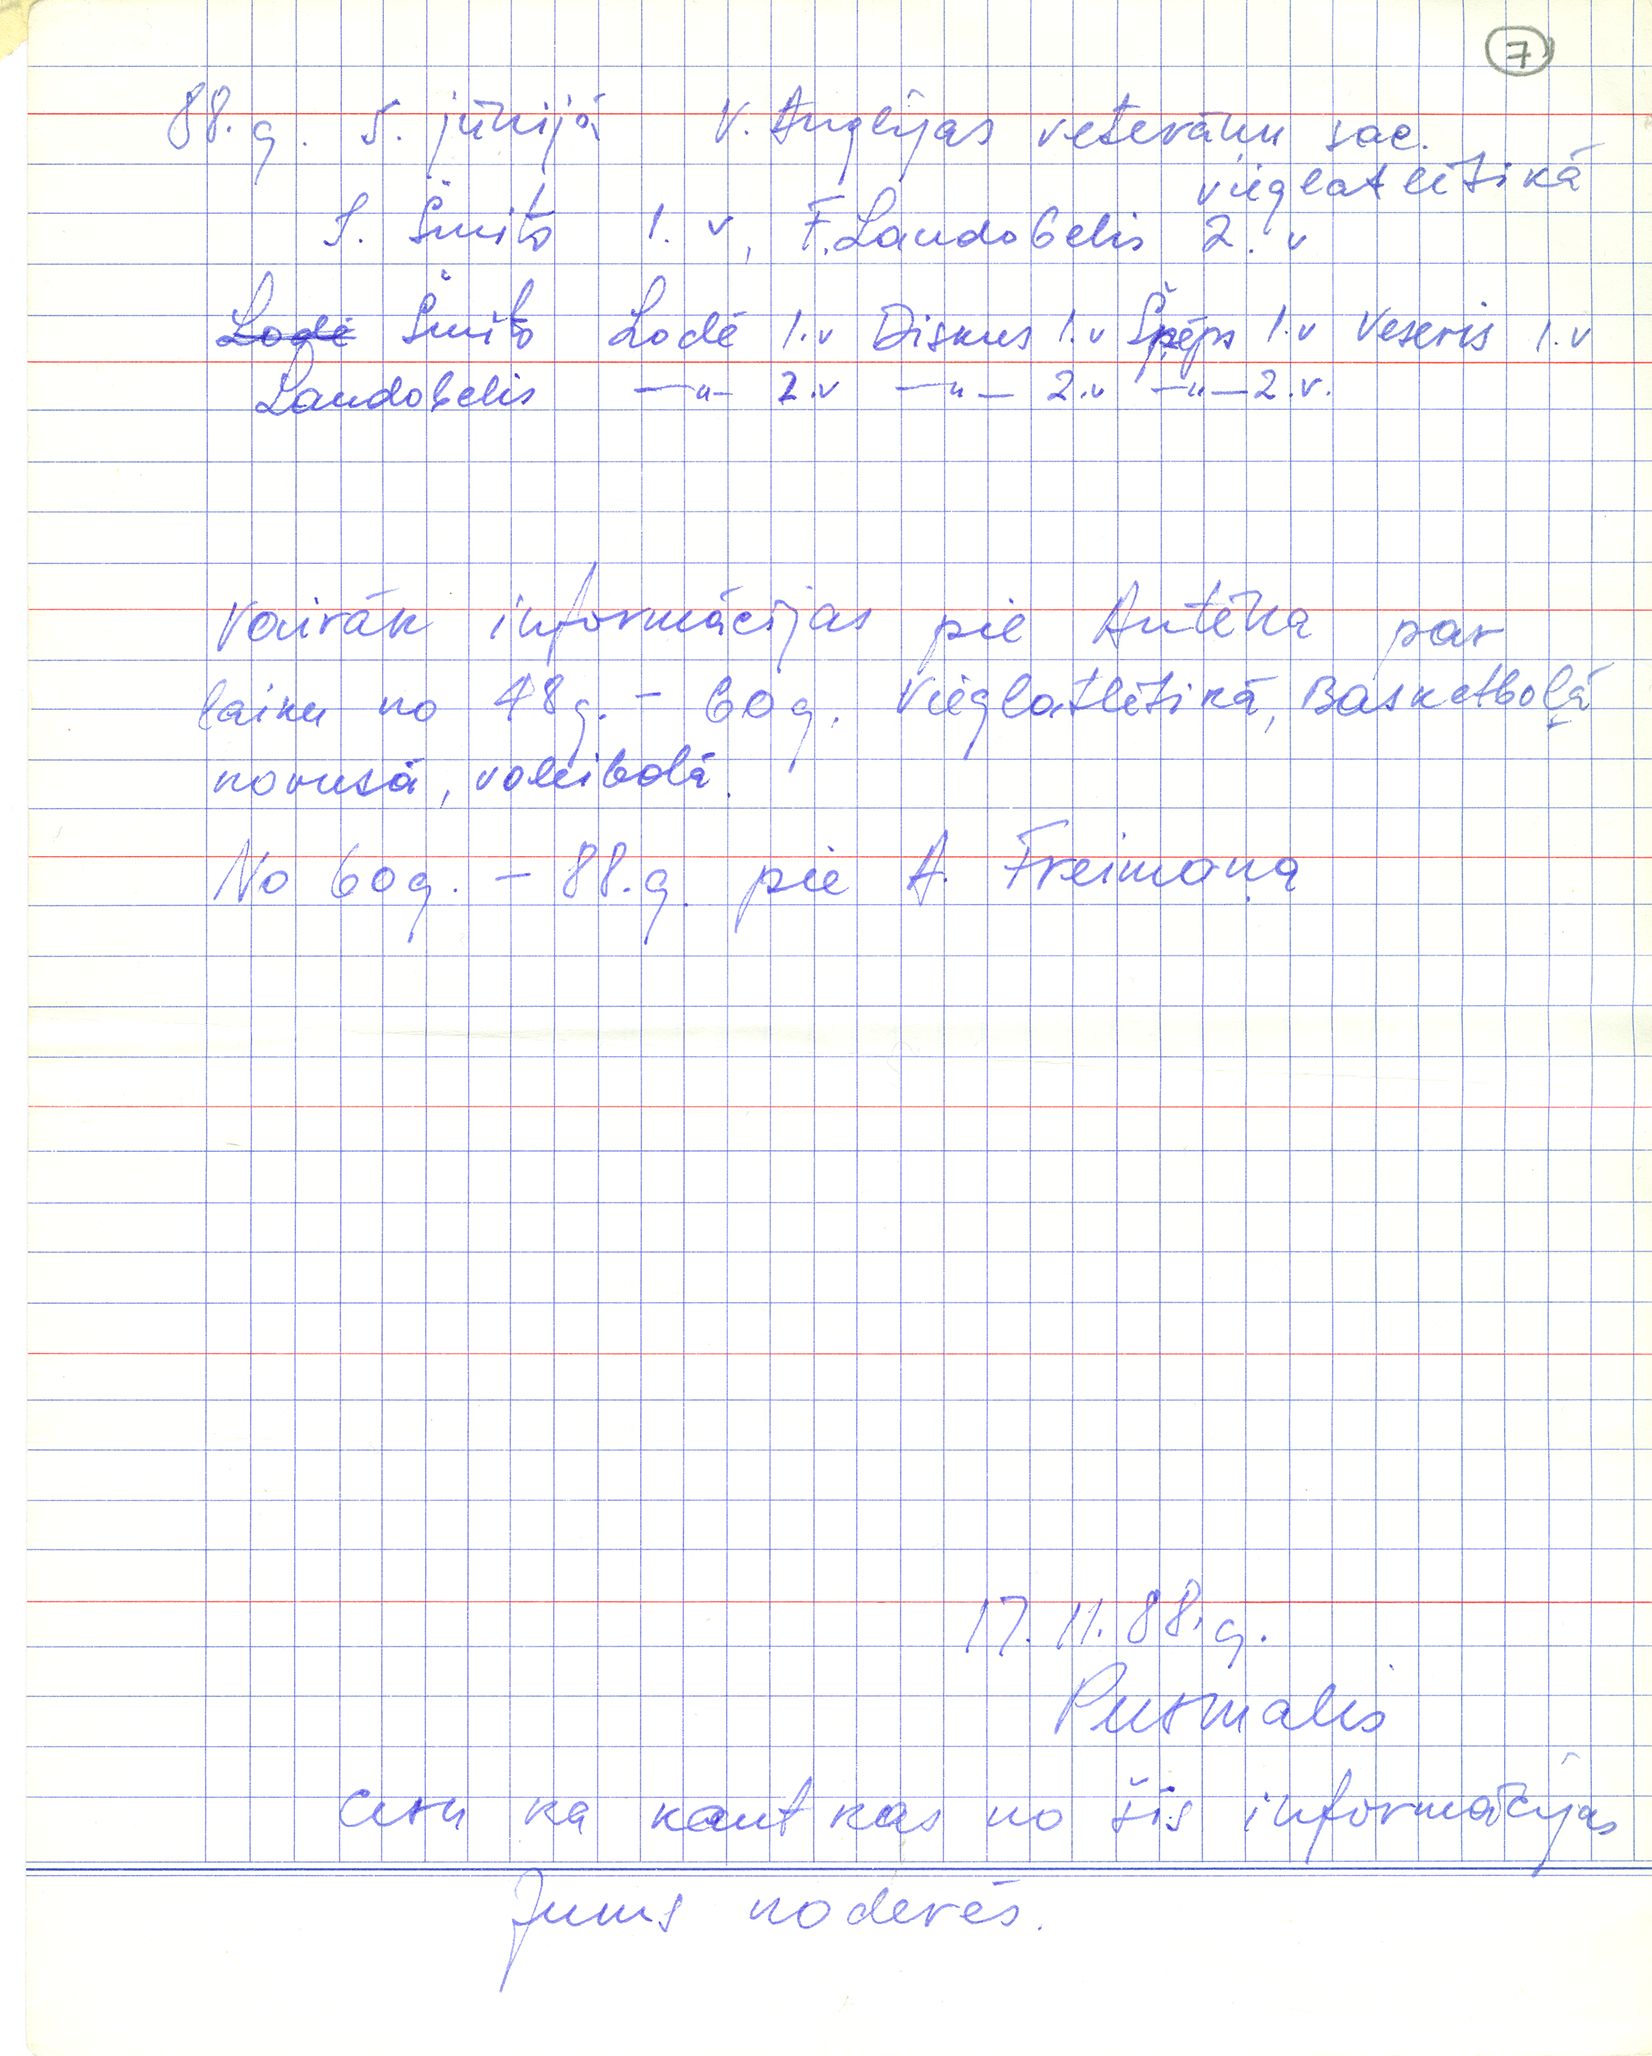 7
88.g. 5. jūnijā V. Anglijas veterānu sac.
vieglatlētikā
J. Šmits 1. v, F. Laudobelis 2. v
Lodē Šmits Lodē 1.v Diskus 1.v Šķēps 1.v Veseris 1.v
Laudobelis —"— 2.v —"— 2.v —"— 2.v.
Vairāk informācijas pie Antēna par
laiku no 48g. – 60g. Vieglatlētikā, Basketbolā
novusā, voleibolā.
No 60g. – 88.g. pie A. Freimaņa
17.11.88.g.
Pusmalis
ka kaut kas no šīs informācijas
Jums noderēs.